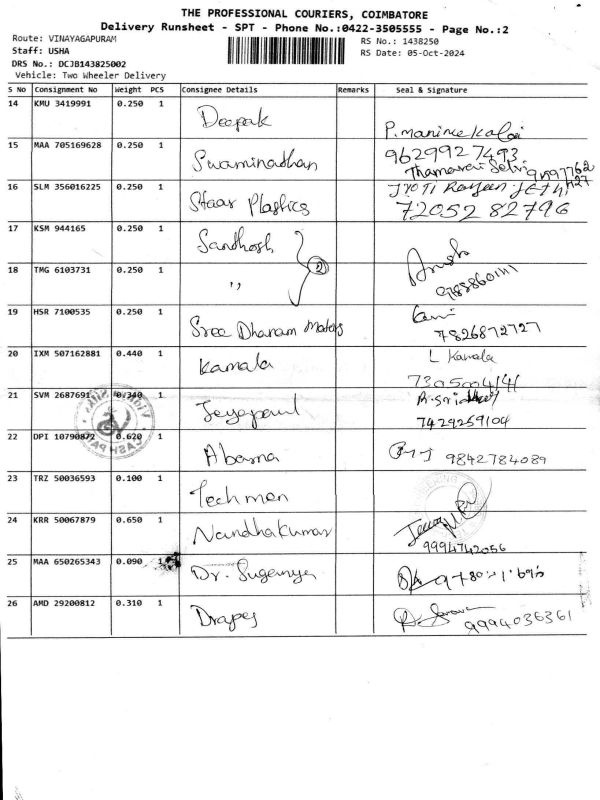 THE PROFESSIONAL COURIERS, COIMBATORE
Delivery Runsheet - SPT - Phone No.:0422-3505555 - Page No.:2
Route: VINAYAGAPURAM
Staff: USHA
DRS No.: DCJB143825002
Vehicle: Two Wheeler Delivery
RS No.: 1438250
RS Date: 05-Oct-2024
S No Consignment No Weight PCS Consignee Details Remarks Seal & Signature
14 KMU 3419991 0.250 1 Deepak
15 MAA 705169628 0.250 1 Swaminadhan 9629927493
Thamarai Selvi
16 SLM 356016225 0.250 1 Staar Plastics JYOTI
7205282796
17 KSM 944165 0.250 1 Sandhosh
18 TMG 6103731 0.250 1 ,, 2
19 HSR 7100535 0.250 1 Sree Dharam Motors
7826872727
20 IXM 507162881 0.440 1 Kamala L Kamala
21 SVM 2687691 0.340 1 Jeyapaul
7429259104
22 DPI 10790872 0.620 1 Abarna 9842784089
23 TRZ 50036593 0.100 1 Techmen
24 KRR 50067879 0.650 1 Nandhakumar
9994742056
25 MAA 650265343 0.090 1 Dr. Suganya
26 AMD 29200812 0.310 1 Drapes 9994036361